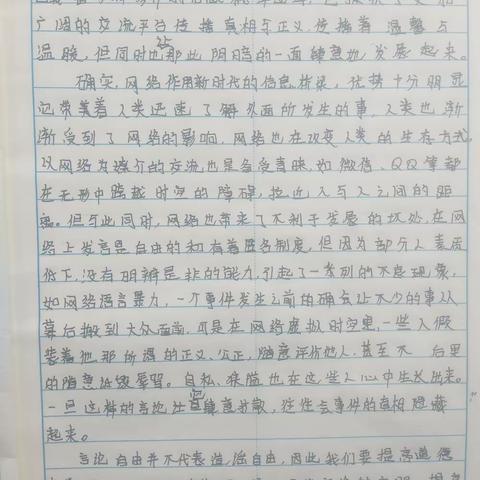 广阔的交流平台传播真相与正义,传播着温馨与
温暖,但同时也让那些阴暗的一面肆意地发展起来。
确实,网络作用新时代的信息桥梁,优势十分明显
它带着着人类迅速了解外面所发生的事,人类也渐
渐受到了网络的影响,网络也在改变人类的生存方式,
以网络为媒介的交流也是备受青睐,如微信、QQ等都
在无形中跨越时空的障碍,拉近人与人之间的距
离。但与此同时,网络也带来了不利于发展的坏处,在网
络上发言是自由的和有着匿名制度,但因为部分人素质
低下,没有明辨是非的能力,引起了一系列的不良现象,
如网络语言暴力,一个事件发生之前的确会让不少的事从
幕后搬到大众面前,可是在网络虚拟时空里,一些人假
装着他那所谓的正义、公正,随意评价他人,甚至不 后里
的随意 辱骂。自私、狭隘也在这些人心中生长出来。
一旦这样的言论 肆意扩散,往往会事件的真相隐藏
起来。
言论自由并不代表 自由,因此我们要提高道德